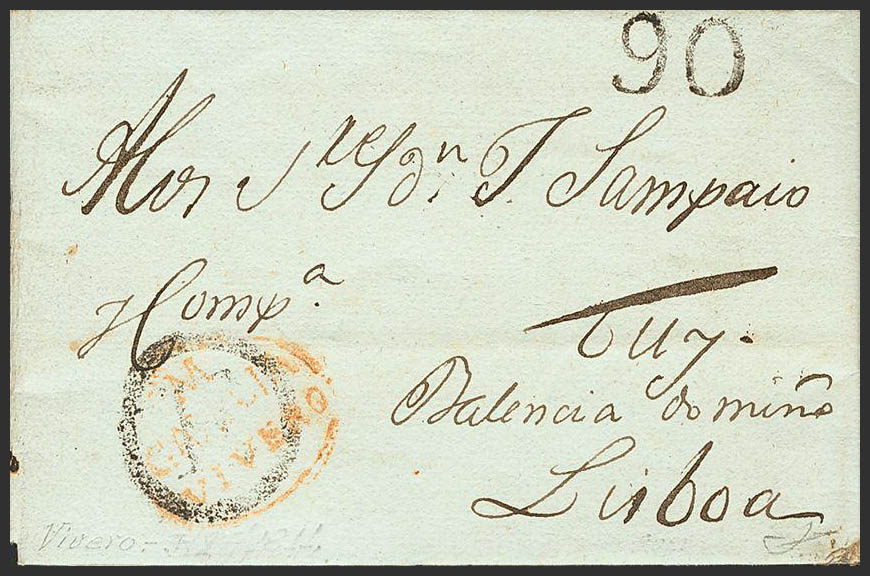 90
A los S.res Jdn. T. Sampaio
y Comp.a
Tuy.
Balencia do miño
Lisboa
GALICIA
VIVERO
Vivero-